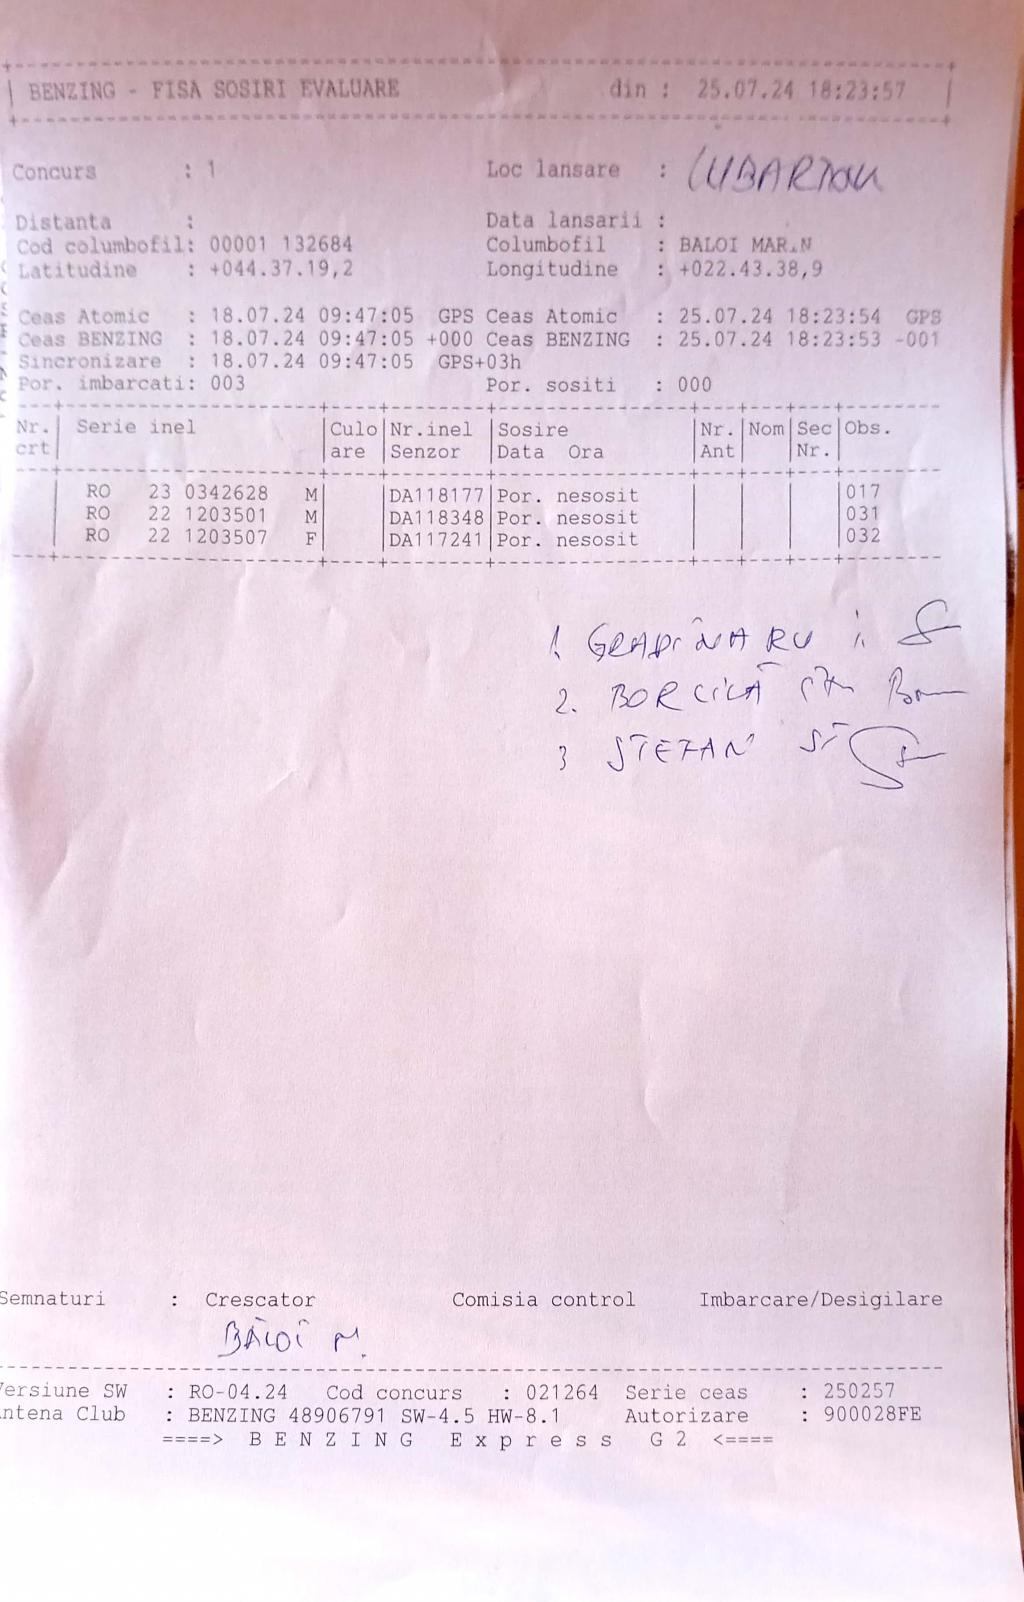 BENZING - FISA SOSIRI EVALUARE din : 25.07.24 18:23:57
Concurs : 1 Loc lansare :
Distanta : Data lansarii :
Cod columbofil: 00001 132684 Columbofil : BALOI MAR.N
Latitudine : +044.37.19,2 Longitudine : +022.43.38,9
Ceas Atomic : 18.07.24 09:47:05 GPS Ceas Atomic : 25.07.24 18:23:54 GPS
Ceas BENZING : 18.07.24 09:47:05 +000 Ceas BENZING : 25.07.24 18:23:53 -001
Sincronizare : 18.07.24 09:47:05 GPS+03h
Por. imbarcati: 003 Por. sositi : 000
Nr. Serie inel Culo Nr.inel Sosire Nr. Nom Sec Obs.
crt are Senzor Data Ora Ant Nr.
RO 23 0342628 M DA118177 Por. nesosit 017
RO 22 1203501 M DA118348 Por. nesosit 031
RO 22 1203507 F DA117241 Por. nesosit 032
1. GRADINARU I.
2. BORCILĂ
3 STEFAN ST
Semnaturi : Crescator Comisia control Imbarcare/Desigilare
BĂLOI M.
Versiune SW : RO-04.24 Cod concurs : 021264 Serie ceas : 250257
ntena Club : BENZING 48906791 SW-4.5 HW-8.1 Autorizare : 900028FE
====> B E N Z I N G E x p r e s s G 2 <====